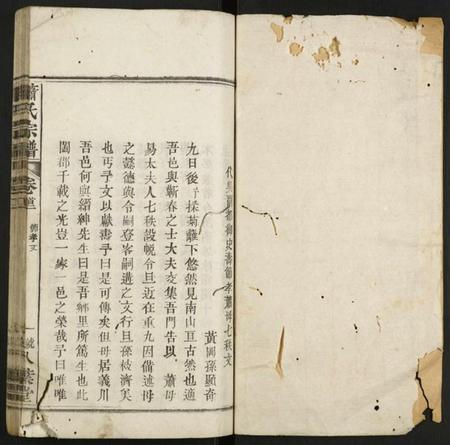 代吳夏都御史壽節孝蕭母七秩文
黃岡孫顯奇
九日後予採菊籬下悠然見南山亘古然也適
吾邑與蘄春之士大夫交集吾門告以 蕭母
易太夫人七秩設帨令旦近在重九因備述母
之懿德與令嗣登峯嗣遴之文行且孫枝濟美
也丐予文以獻壽予曰是可傳矣但母居義川
吾邑何與縉紳先生曰是吾鄉里所篤生也此
闔郡千載之光豈一嫁一邑之榮哉予曰唯唯
蕭氏宗譜
卷
節孝文
一
八葉堂